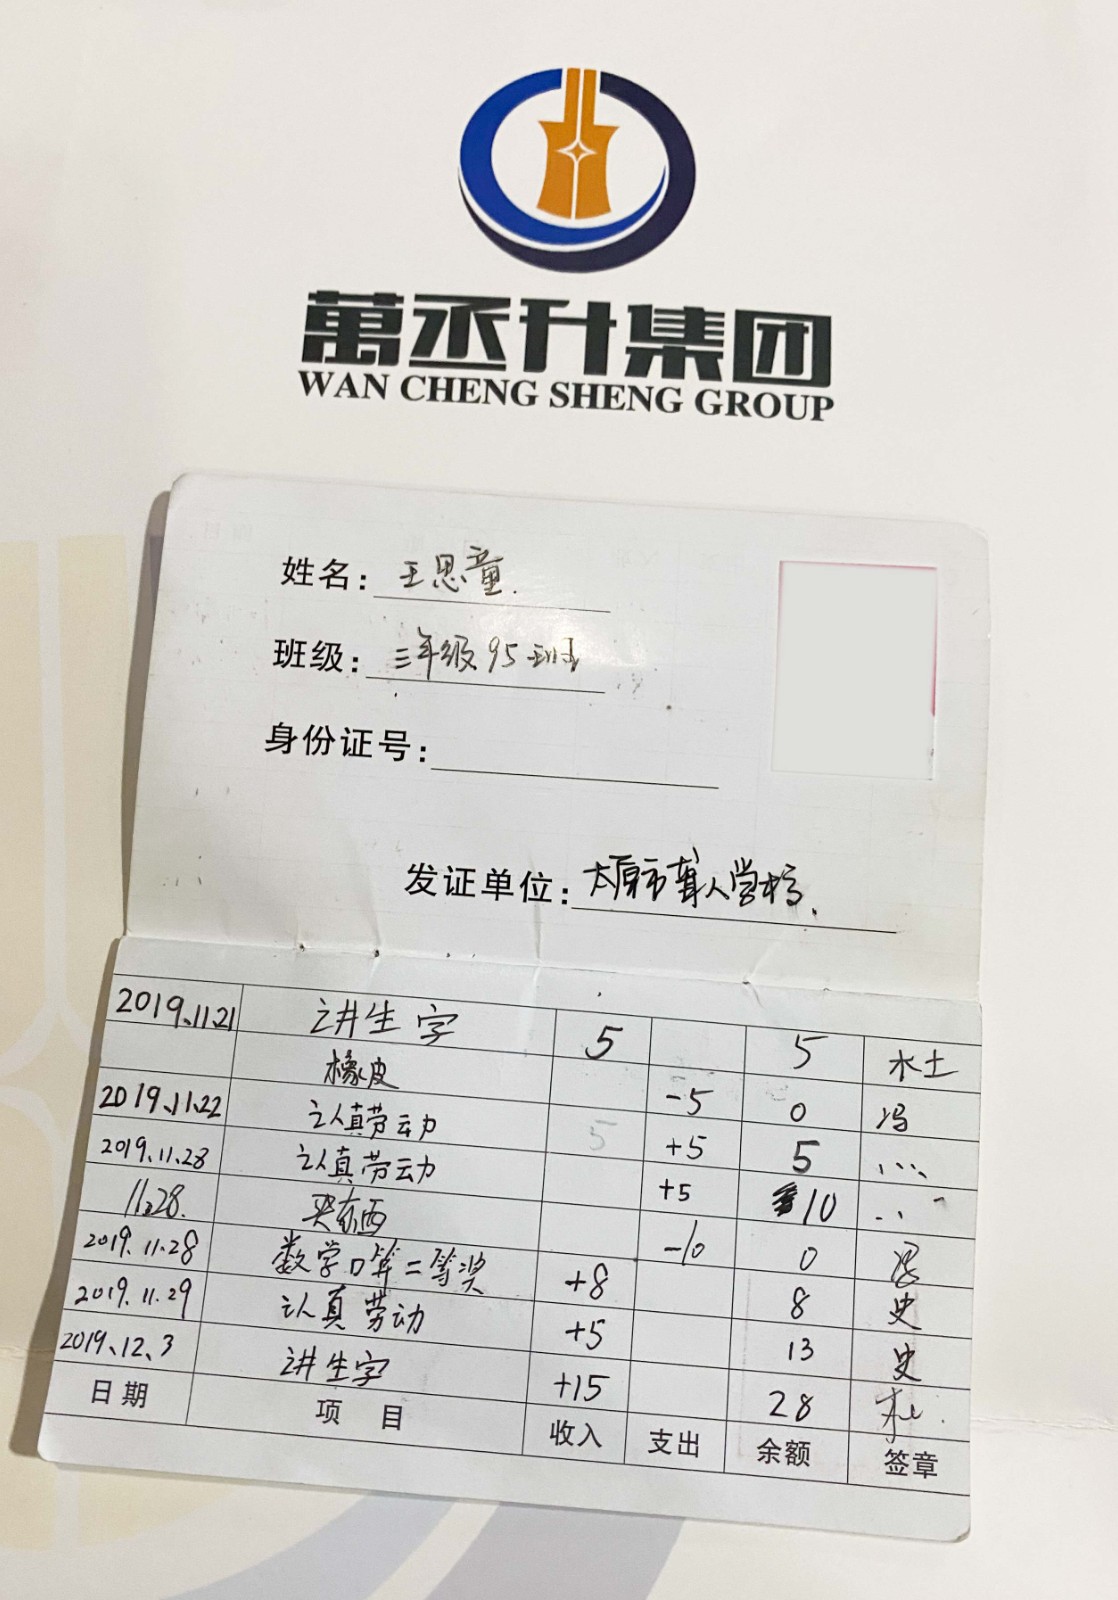 萬丞升集团
WAN CHENG SHENG GROUP
姓名：王思童.
班级：三年级95班
身份证号：
发证单位：太原市聋人学校.
2019.11.21 讲生字 5 5
橡皮 -5 0 冯
2019.11.22 认真劳动 5 +5 5
2019.11.28 认真劳动 +5 10
11.28. 买东西 -10 0
2019.11.28 数学口算二等奖 +8 8 史
2019.11.29 认真劳动 +5 13 史
2019.12.3 讲生字 +15 28
日期 项目 收入 支出 余额 签章